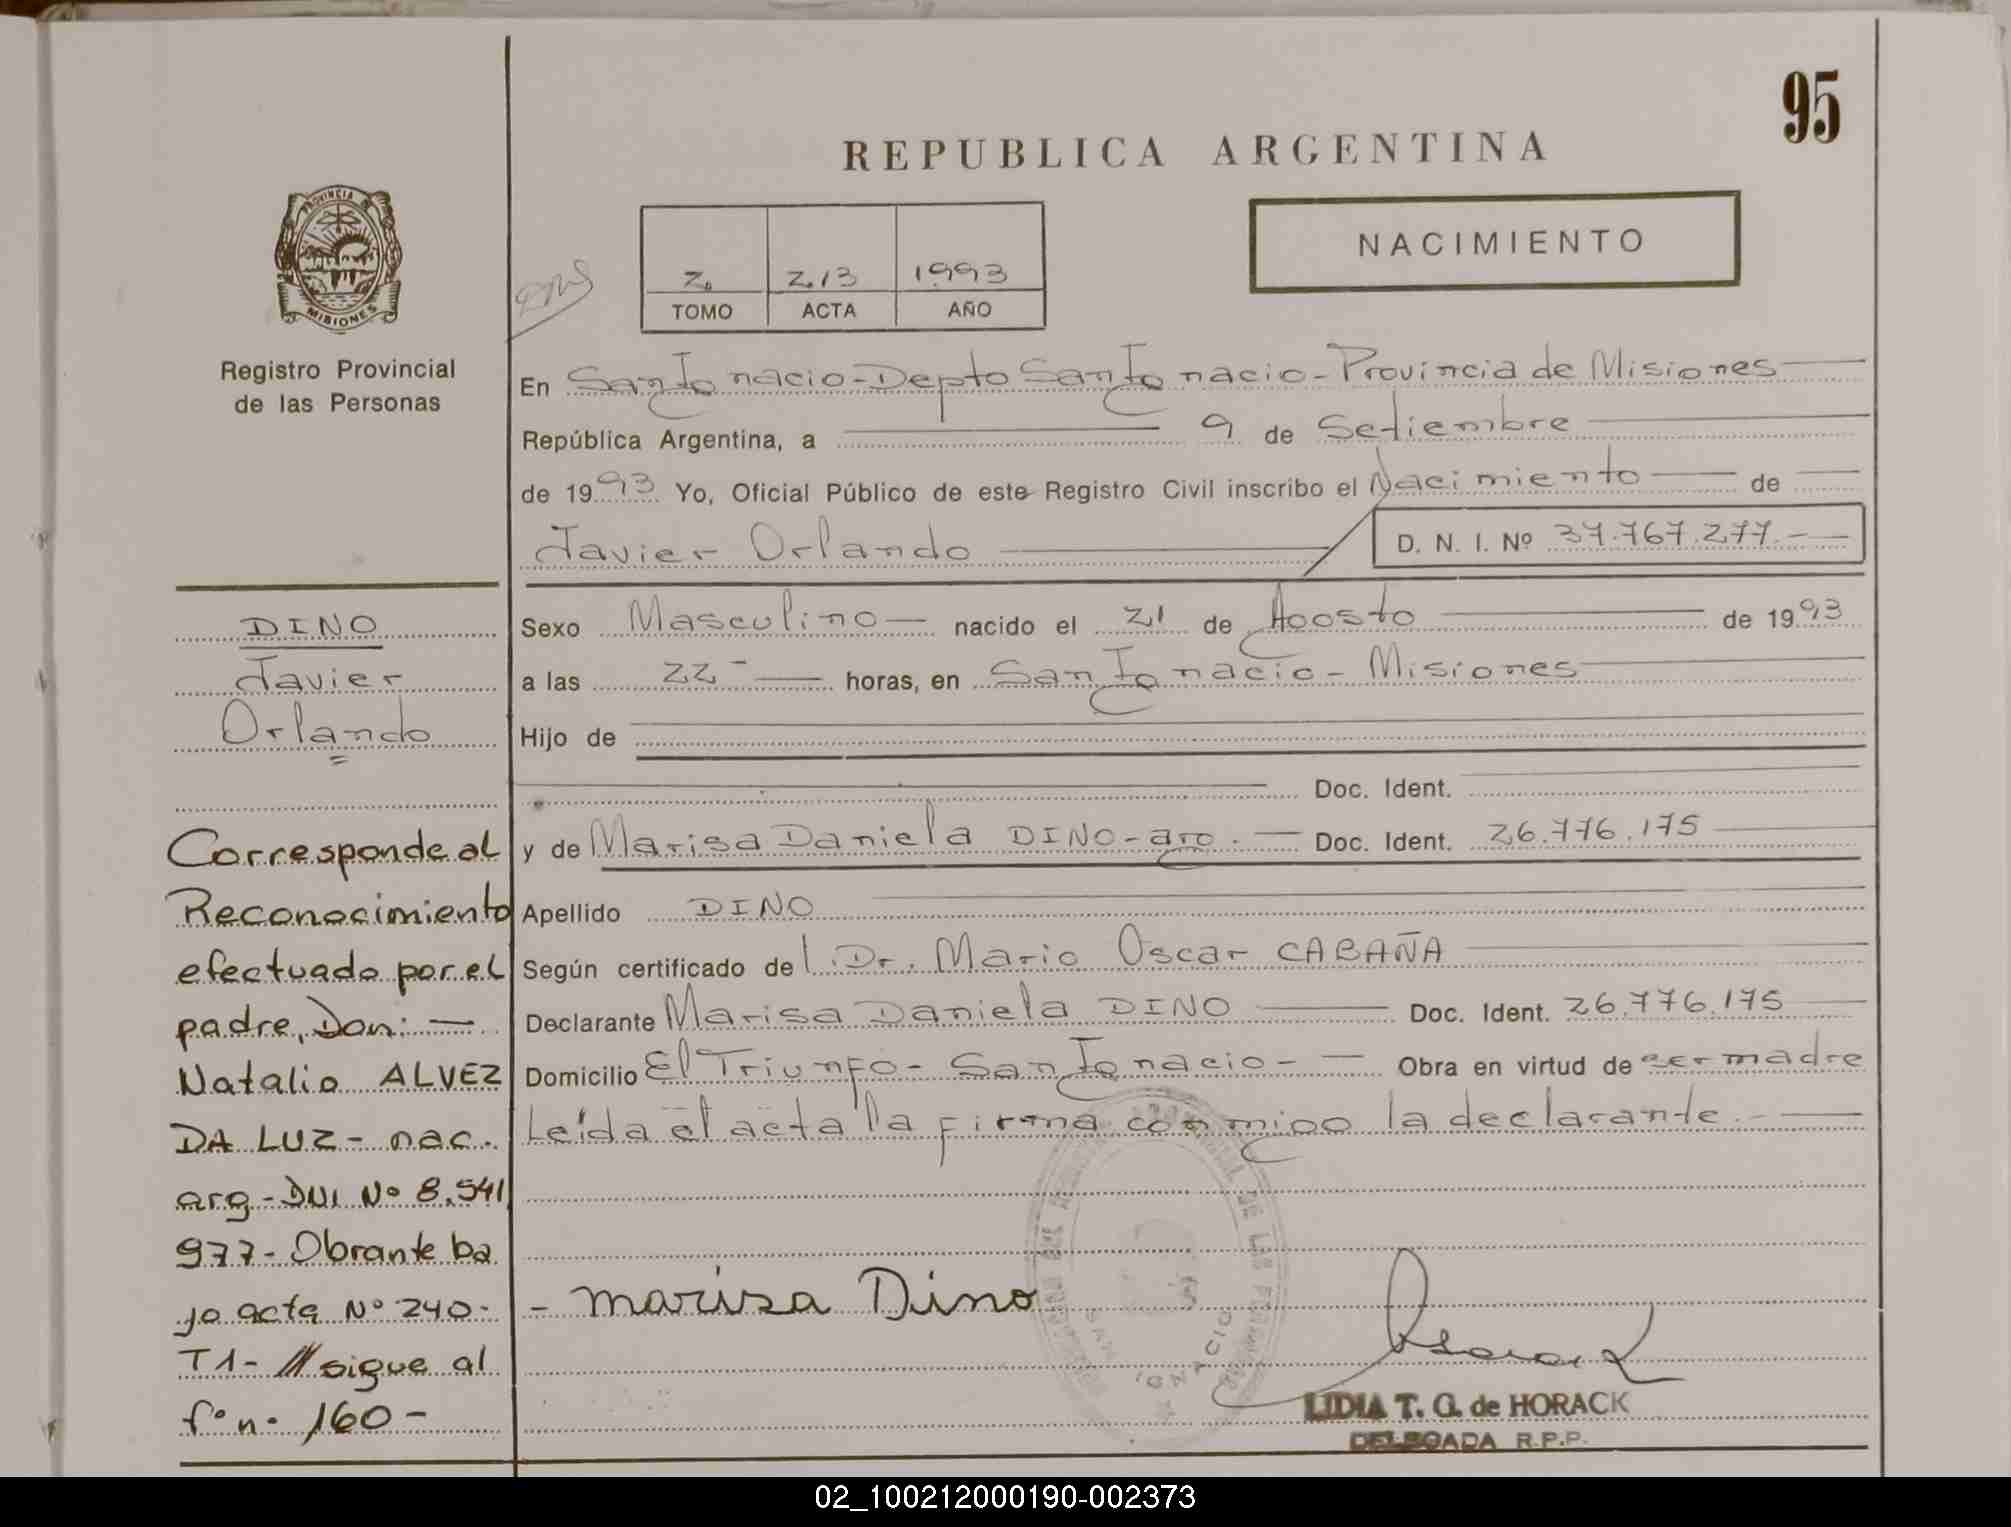 95
REPUBLICA ARGENTINA
PROVINCIA DE
MISIONES
NACIMIENTO
2 213 1993
TOMO ACTA AÑO
Registro Provincial
de las Personas
En San Ignacio - Depto San Ignacio - Provincia de Misiones
República Argentina, a 9 de Setiembre
de 1993 Yo, Oficial Público de este Registro Civil inscribo el Nacimiento de
Javier Orlando D. N. I. Nº 37.767.277.-
Sexo Masculino nacido el 21 de Agosto de 1993
a las 22 horas, en San Ignacio - Misiones
Hijo de
Doc. Ident.
y de Marisa Daniela DINO - arg. Doc. Ident. 26.776.175
Apellido DINO
Según certificado de l Dr. Mario Oscar CABAÑA
Declarante Marisa Daniela DINO Doc. Ident. 26.776.175
Domicilio El Triunfo - San Ignacio - Obra en virtud de ser madre
Leída el acta la firma conmigo la declarante.
marisa Dino
LIDIA T. G. de HORACK
DELEGADA R.P.P.
DINO
Javier
Orlando
Corresponde al
Reconocimiento
efectuado por el
padre, Don: -
Natalio ALVEZ
DA LUZ - nac.
arg - DNI Nº 8.541
977 - Obrante ba
jo acta Nº 240-
T1 - // sigue al
fº nº 160 -
02_100212000190-002373